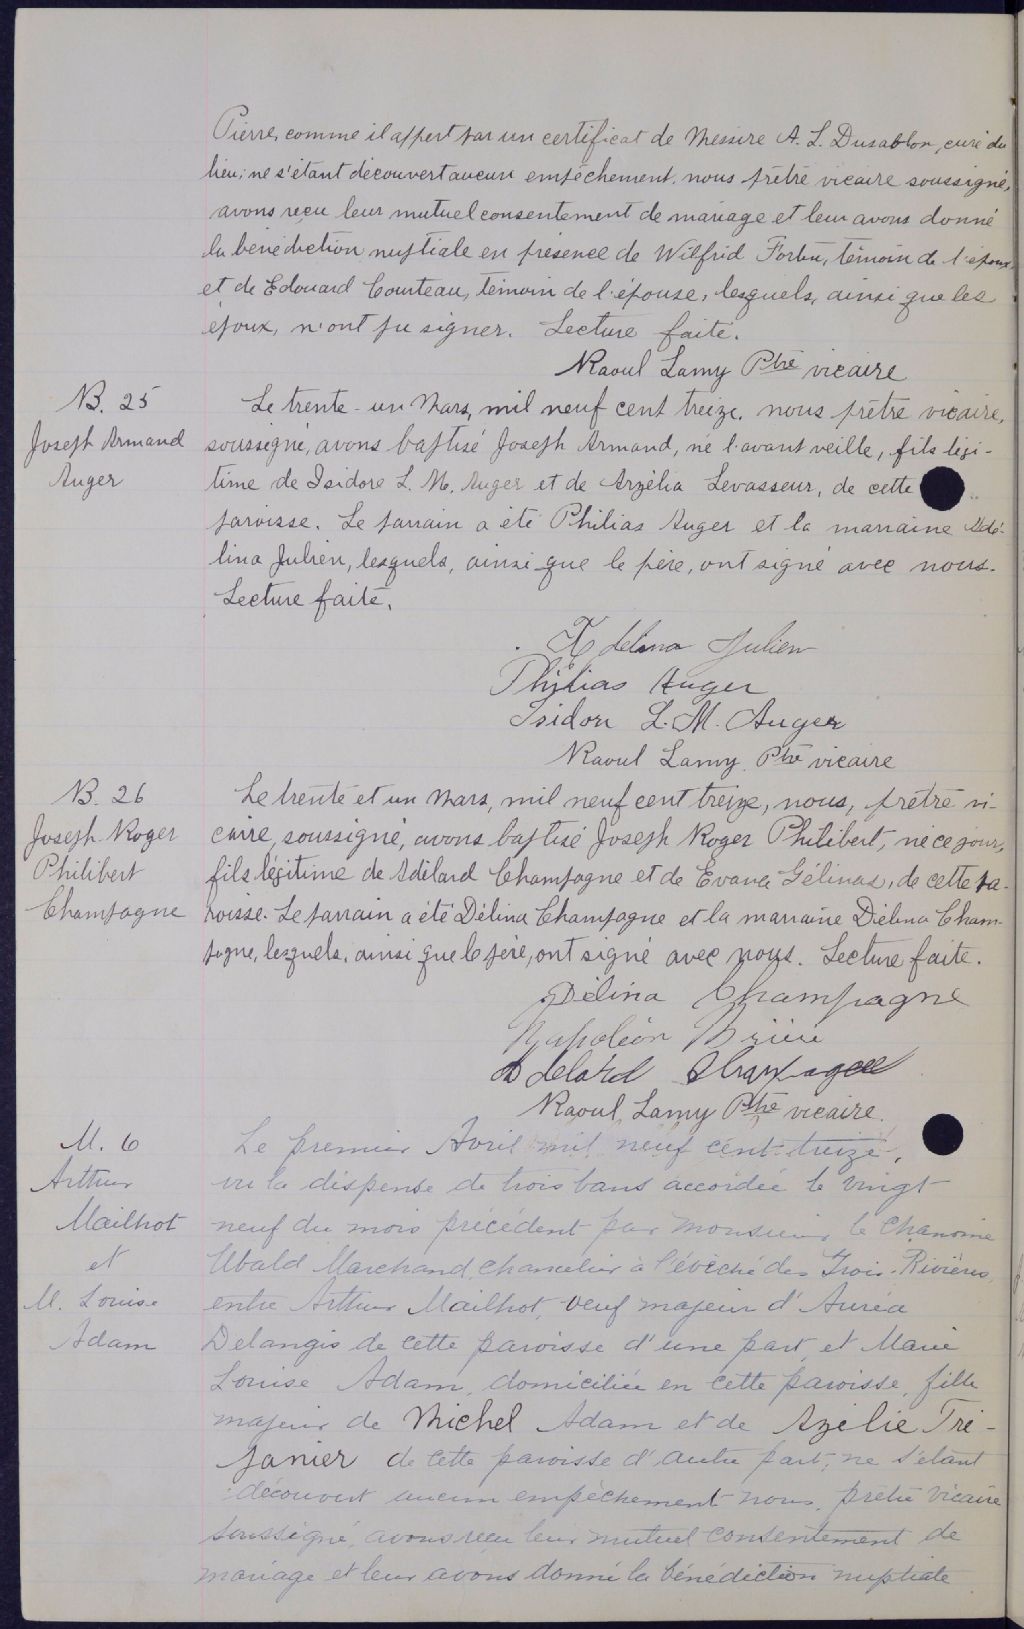 Pierre, comme il appert par un certificat de Messire A. L. Dusablon, curé du
lieu; ne s'étant découvert aucun empêchement, nous prêtre vicaire soussigné,
avons reçu leur mutuel consentement de mariage et leur avons donné
la bénédiction nuptiale en présence de Wilfrid Fortin, témoin de l'époux,
et de Edouard Courteau, témoin de l'épouse, lesquels, ainsi que les
époux, n'ont pu signer. Lecture faite.
Raoul Lamy Ptre vicaire
B. 25
Joseph Armand
Auger
Le trente-un Mars, mil neuf cent treize, nous prêtre vicaire,
soussigné, avons baptisé Joseph Armand, né l'avant veille, fils légi-
time de Isidore L. M. Auger et de Arzélia Levasseur, de cette
paroisse. Le parrain a été Philias Auger et la marraine Adé-
lina Julien, lesquels, ainsi que le père, ont signé avec nous.
Lecture faite.
Adelina Julien
Philias Auger
Isidore L. M. Auger
Raoul Lamy Ptre vicaire
B. 26
Joseph Roger
Philibert
Champagne
Le trente et un Mars, mil neuf cent treize, nous, prêtre vi-
caire, soussigné, avons baptisé Joseph Roger Philibert, né ce jour,
fils légitime de Adélard Champagne et de Evana Gélinas, de cette pa-
roisse. Le parrain a été Délina Champagne et la marraine Délina Cham-
pagne, lesquels, ainsi que le père, ont signé avec nous. Lecture faite.
Délina Champagne
Napoléon
Adelard Champagne
Raoul Lamy Ptre vicaire.
M. 6
Arthur
Mailhot
et
M. Louise
Adam
Le premier Avril mil neuf cent-treize,
vu la dispense de trois bans accordée le vingt
neuf du mois précédent par Monsieur le Chanoine
Ubald Marchand, chancelier à l'évêché des Trois-Rivières,
entre Arthur Mailhot, veuf majeur d'Auréa
Delangis de cette paroisse d'une part, et Marie
Louise Adam, domiciliée en cette paroisse, fille
majeure de Michel Adam et de Azélie Tré-
panier de cette paroisse d'autre part; ne s'étant
découvert aucun empêchement nous, prêtre vicaire
soussigné, avons reçu leur mutuel consentement de
mariage et leur avons donné la bénédiction nuptiale